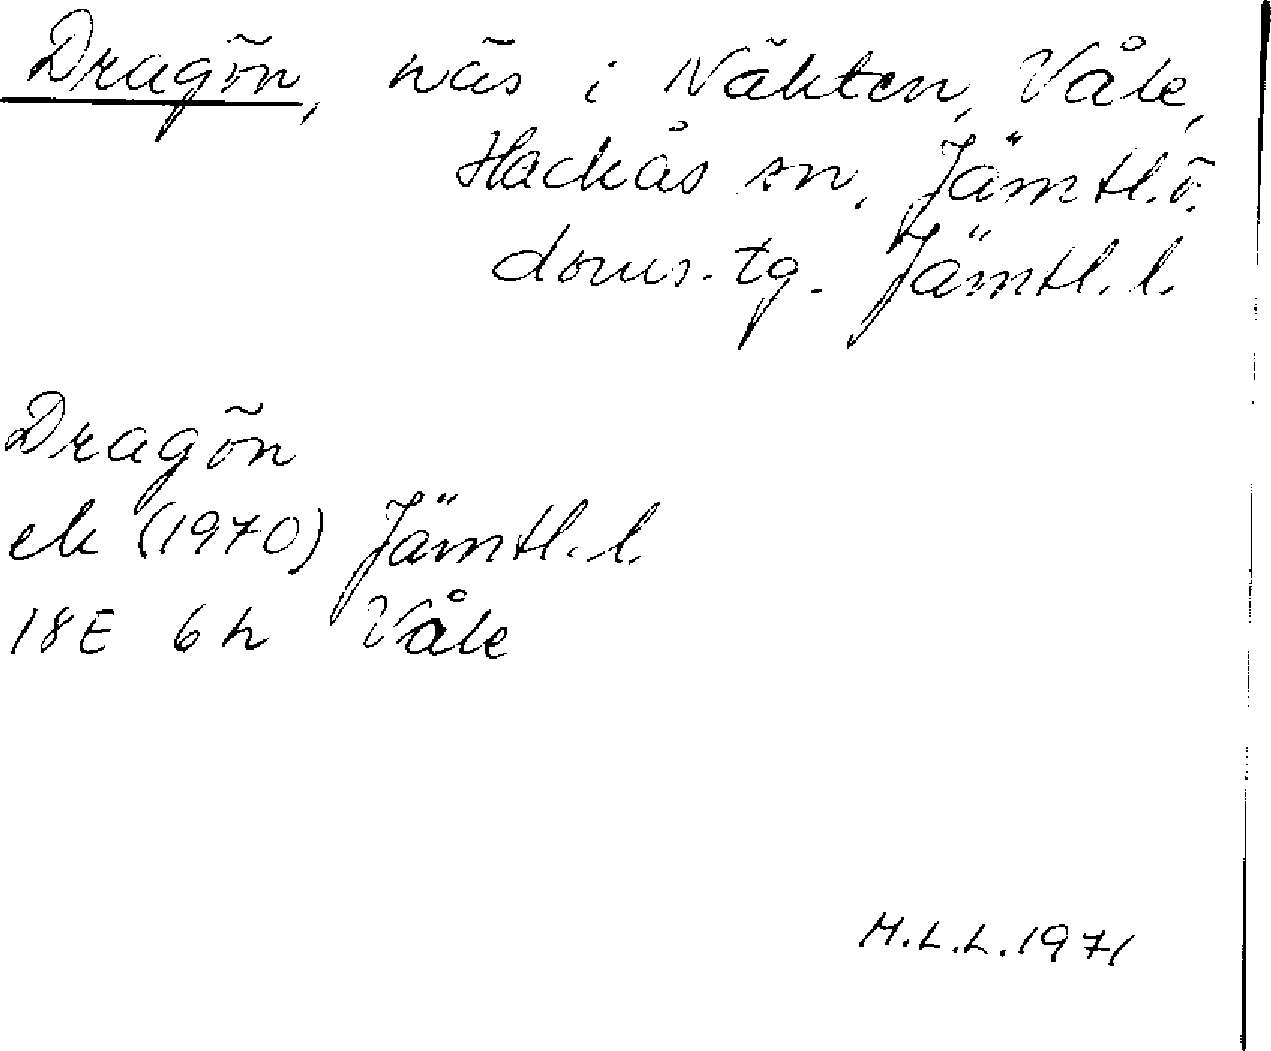 Dragön, näs i Näkten, Våle,
Hackås sn, Jämtl.ö.
doms.tg. Jämtl. l.
Dragön
ek (1970) Jämtl. l.
18E 6h Våle
M.L.L. 1971